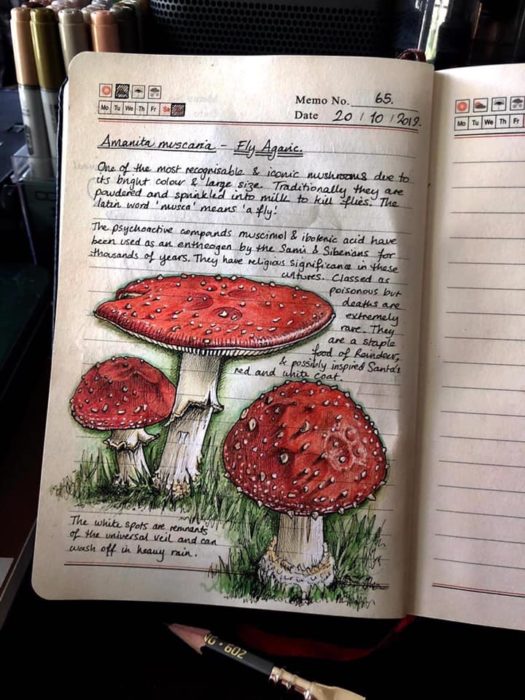 Memo No. 65.
Mo Tu We Th Fr Sa
Date 20 / 10 / 2019.
Mo Tu We Th
Amanita muscaria – Fly Agaric.
One of the most recognisable & iconic mushrooms due to
its bright colour & large size. Traditionally they are
powdered and sprinkled into milk to kill flies. The
latin word 'musca' means 'a fly'.
The psychoactive compounds muscimol & ibotenic acid have
been used as an entheogen by the Sami & Siberians for
thousands of years. They have religious significance in these
cultures. Classed as
poisonous but
deaths are
extremely
rare. They
are a staple
food of Reindeer,
& possibly inspired Santa's
red and white coat.
The white spots are remnants
of the universal veil and can
wash off in heavy rain.
NG · 602